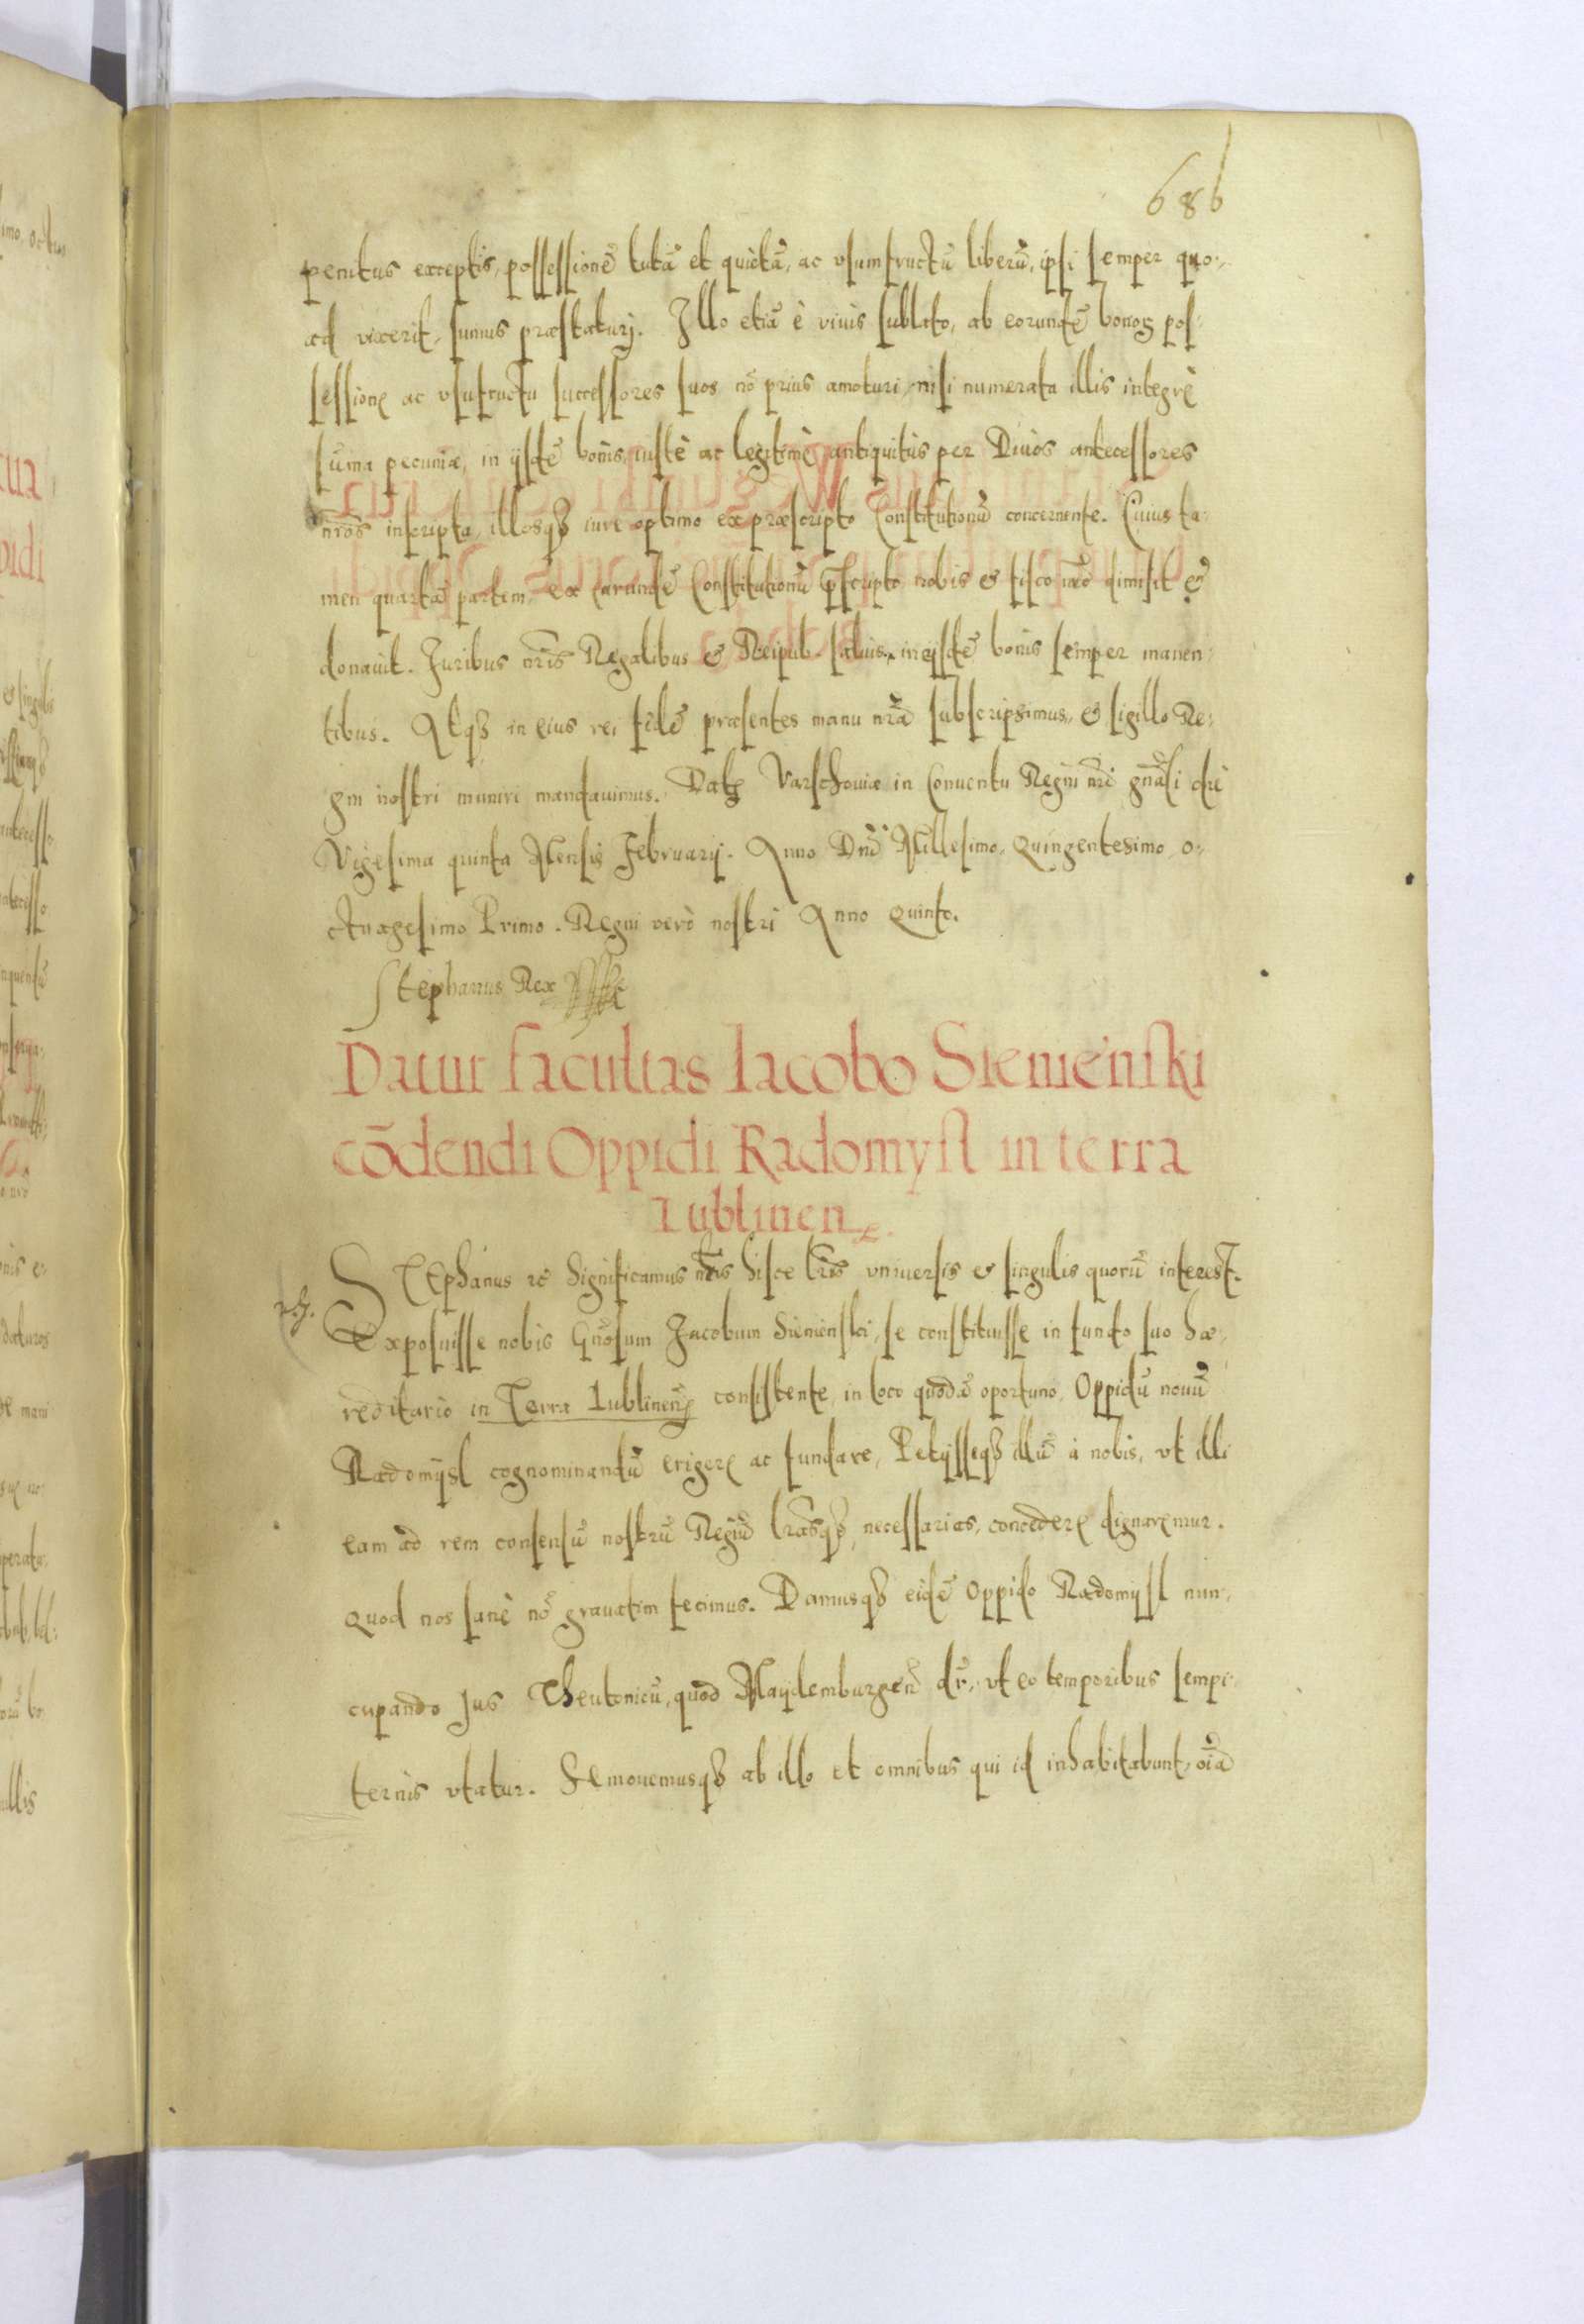 686
penitus exceptis, possessionē tutā et quietā, ac vsumfructū liberū, ipsi semper quo-
ad vixerit, sumus præstaturj. Illo etiā è viuis sublato, ab eorundē bonoꝝ pos-
sessionę ac vsufructu successores suos nō prius amoturi, nisi numerata illis integrè
sūma pecuniæ, in ijsdē bonis, iustè ac legitimè antiquitùs per Diuos antecessores
nr̄os inscripta, illosqꝫ iure optimo ex præscripto Constitutionū concernente. Cuius ta-
men quartā partem, ex earundē Constitutionū p̄scripto nobis & fisco nr̄o dimisit &
donauit. Juribus nr̄is Regalibus & Reipub. saluis, in ijsdē bonis semper manen-
tibus. Atqꝫ in eius rei fidē præsentes manu nr̄a subscripsimus, & sigillo Re-
gni nostri muniri mandauimus. Datꝫ Varschouiæ in Conuentu Regni nr̄i gn̄ali die
Vigesima quinta Mensis Februarij. Anno Dnī Millesimo, Quingentesimo, o-
ctuagesimo Primo. Regni verò nostri Anno Quinto.
Stephanus Rex
Datur facultas Iacobo Sienieński
cōdendi Oppidi Radomysl in terra
Lublinen̄
STEphanus rc̄ Significamus hisce lr̄is nr̄is vniuersis & singulis quorū interest.
Exposuisse nobis Gnōsum Jacobum Sienienski, se constituisse in fundo suo hæ-
reditario in Terra Lublinen̄ consistente, in loco quodā oportuno, Oppidū nouū
Radomijsl cognominandū erigerę ac fundare, Petijsseqꝫ illū à nobis, vt illi
eam ad rem consensū nostrū Regiū lr̄asqꝫ necessarias, concederę dignaremur.
Quod nos sanè nō grauatim fecimus. Damusqꝫ eidē Oppido Radomijsl nun-
cupando Jus Theutonicū, quod Maydemburgen̄ dr̄, vt eo temporibus sempi-
ternis vtatur. Remouemusqꝫ ab illo et omnibus qui id inhabitabunt, oīa